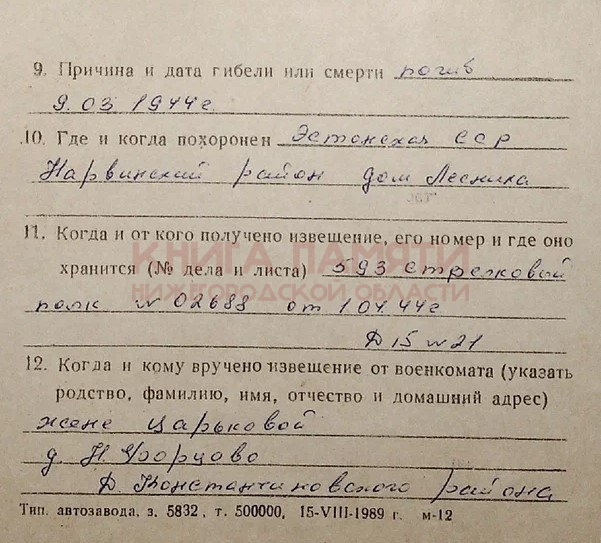 9. Причина и дата гибели или смерти погиб
9.03 1944г.
10. Где и когда похоронен Эстонская ССР
Нарвинский район дом Лесника
11. Когда и от кого получено извещение, его номер и где оно
КНИГА ПАМЯТИ
хранится (№ дела и листа) 593 стрелковый
НИЖЕГОРОДСКОЙ ОБЛАСТИ
полк № 02688 от 10444г
Д 15 № 21
12. Когда и кому вручено извещение от военкомата (указать
родство, фамилию, имя, отчество и домашний адрес)
жене Царьковой
д. Н.
Д. Константиновского района
Тип. автозавода, з. 5832, т. 500000, 15-VIII-1989 г. м-12